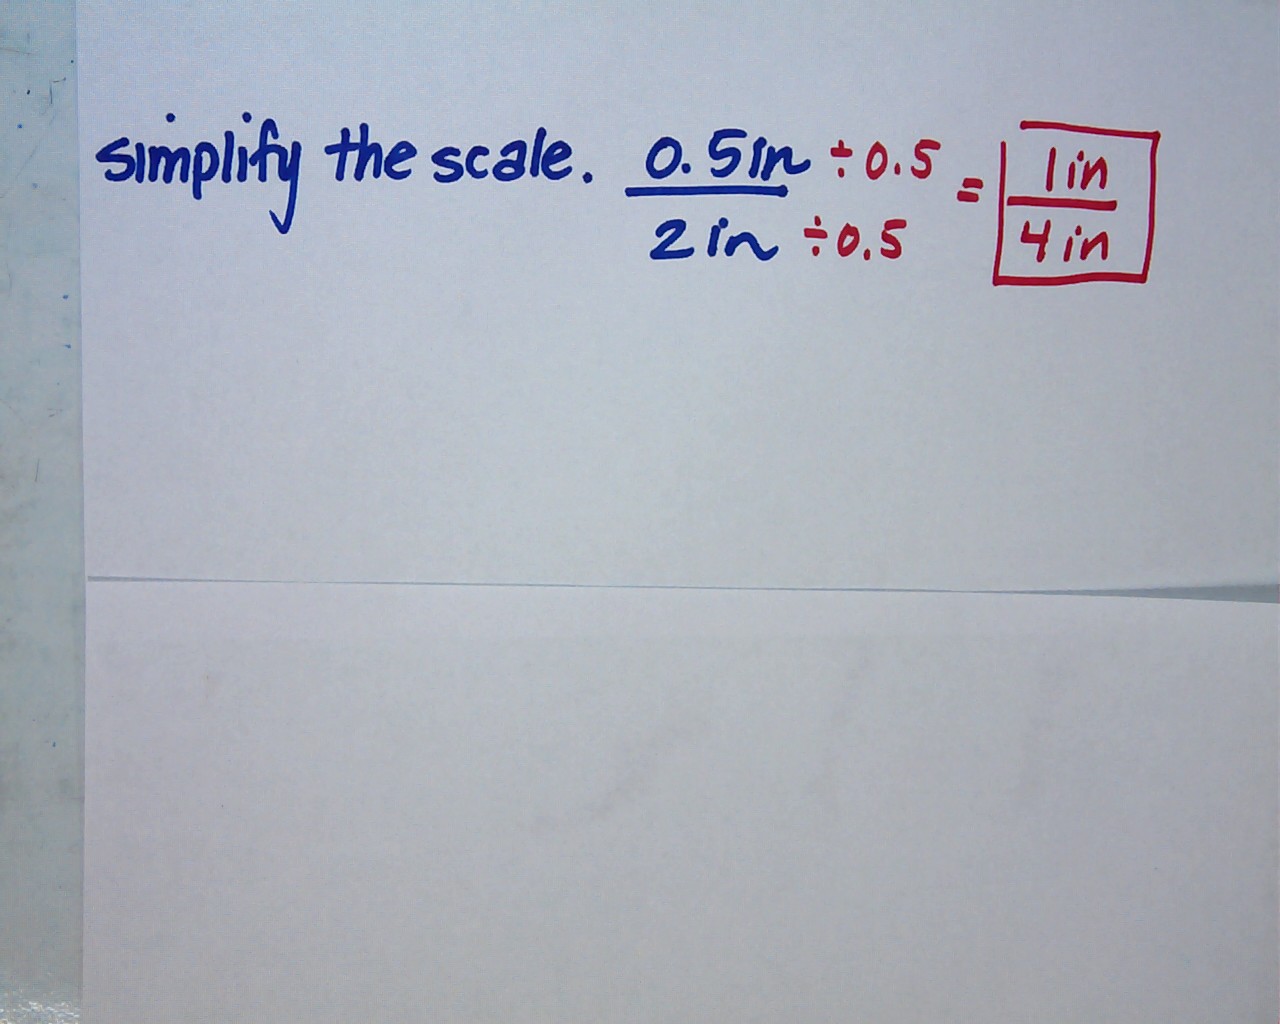 simplify the scale. 0.5in ÷0.5 = 1in
2in ÷0.5 4in